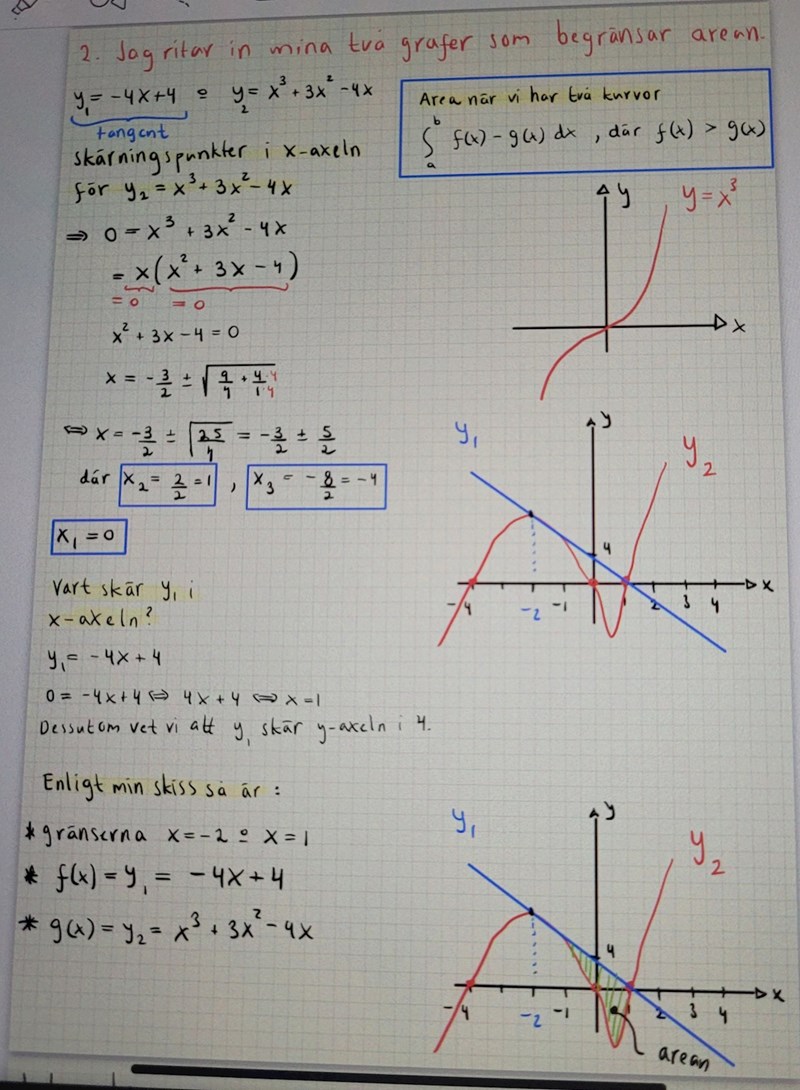 2. Jag ritar in mina två grafer som begränsar arean.
y₁ = -4x+4 o y₂ = x³ + 3x² - 4x
tangent
Area när vi har två kurvor
∫ₐᵇ f(x) - g(x) dx , där f(x) > g(x)
skärningspunkter i x-axeln
för y₂ = x³ + 3x² - 4x
⇒ 0 = x³ + 3x² - 4x
= x(x² + 3x - 4)
= 0 = 0
x² + 3x - 4 = 0
x = -3/2 ± √(9/4 + 4·4/1·4)
⇔ x = -3/2 ± √(25/4) = -3/2 ± 5/2
där x₂ = 2/2 = 1 , x₃ = -8/2 = -4
x₁ = 0
y
y = x³
x
y₁
y
y₂
4
x
-4 -2 -1 1 2 3 4
Vart skär y₁ i
x-axeln?
y₁ = -4x + 4
0 = -4x+4 ⇔ 4x + 4 ⇔ x = 1
Dessutom vet vi att y₁ skär y-axeln i 4.
Enligt min skiss så är :
* gränserna x = -2 o x = 1
* f(x) = y₁ = -4x+4
* g(x) = y₂ = x³ + 3x² - 4x
y₁
y
y₂
4
x
-4 -2 -1 1 2 3 4
arean